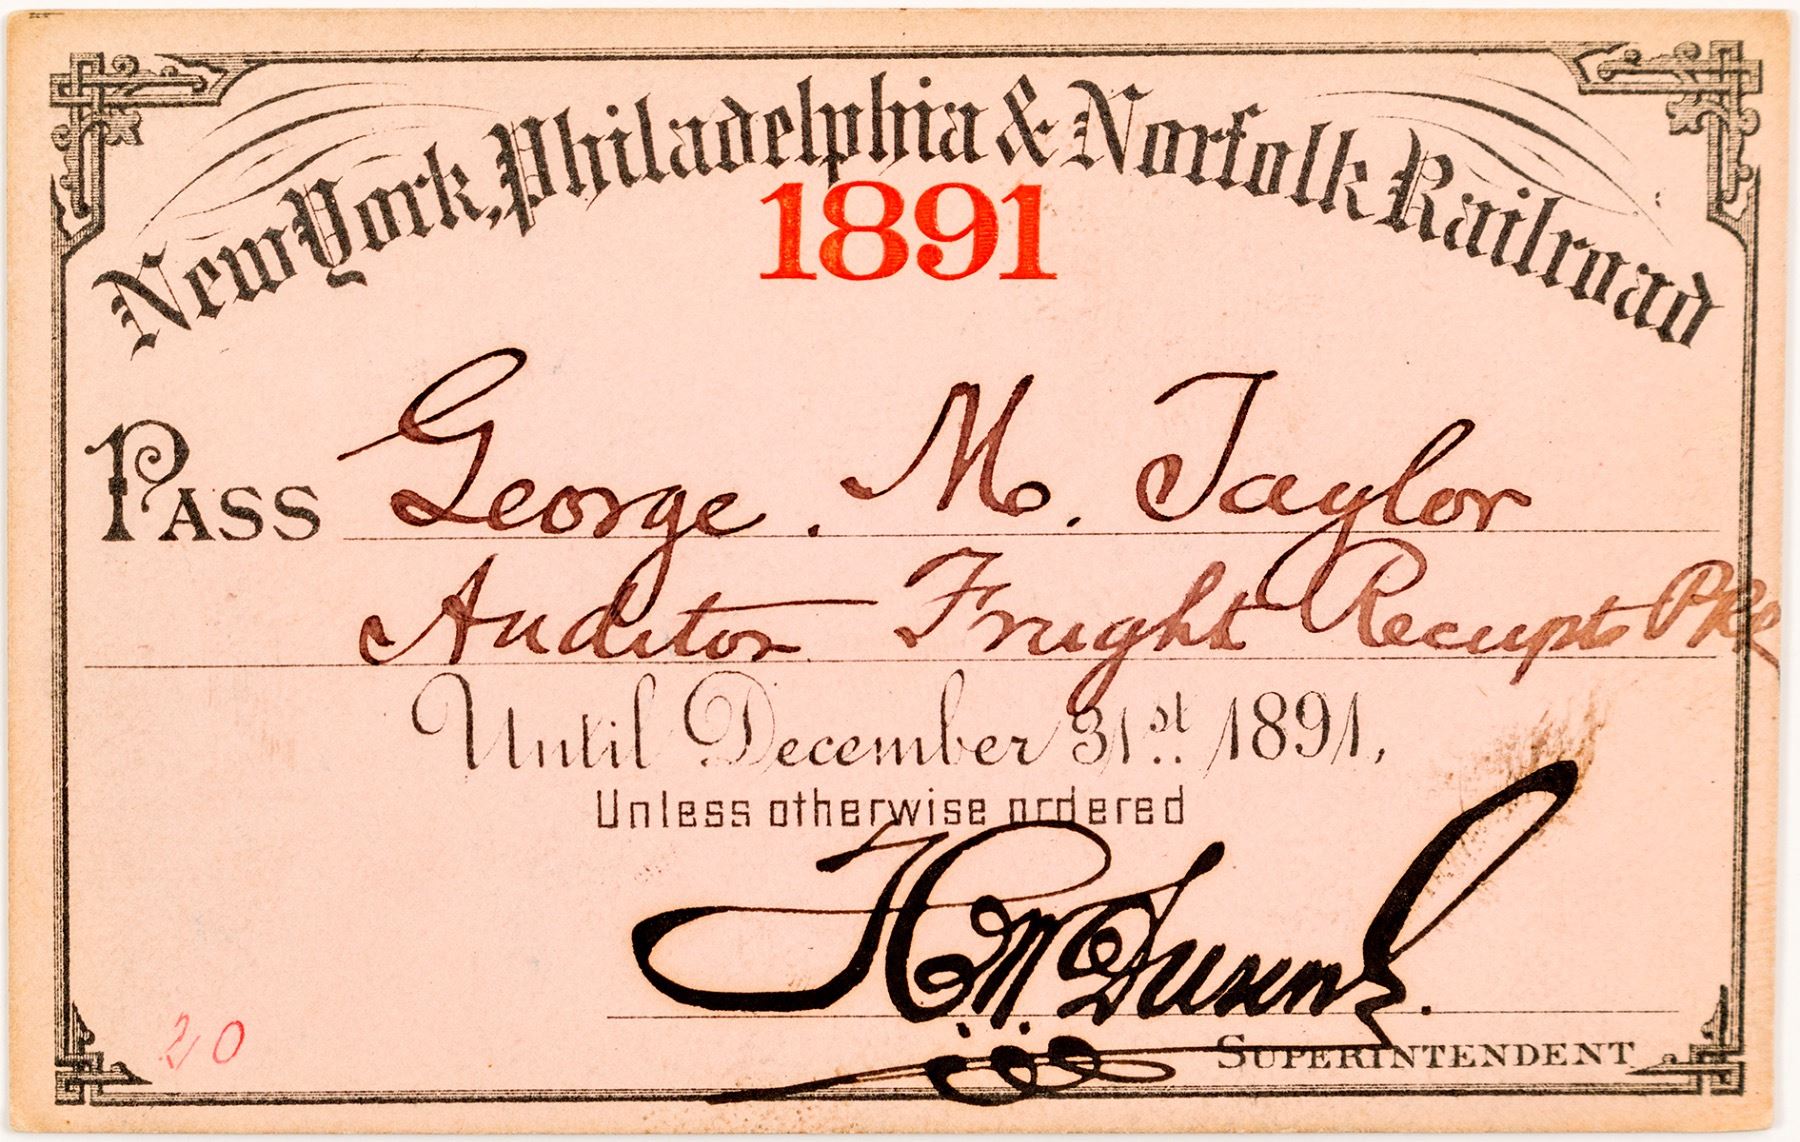 New York, Philadelphia & Norfolk Railroad
1891
PASS George. M. Taylor
Auditor Freight Receipts PRR
Until December 31st. 1891,
Unless otherwise ordered
H. W. Dunne.
SUPERINTENDENT
20